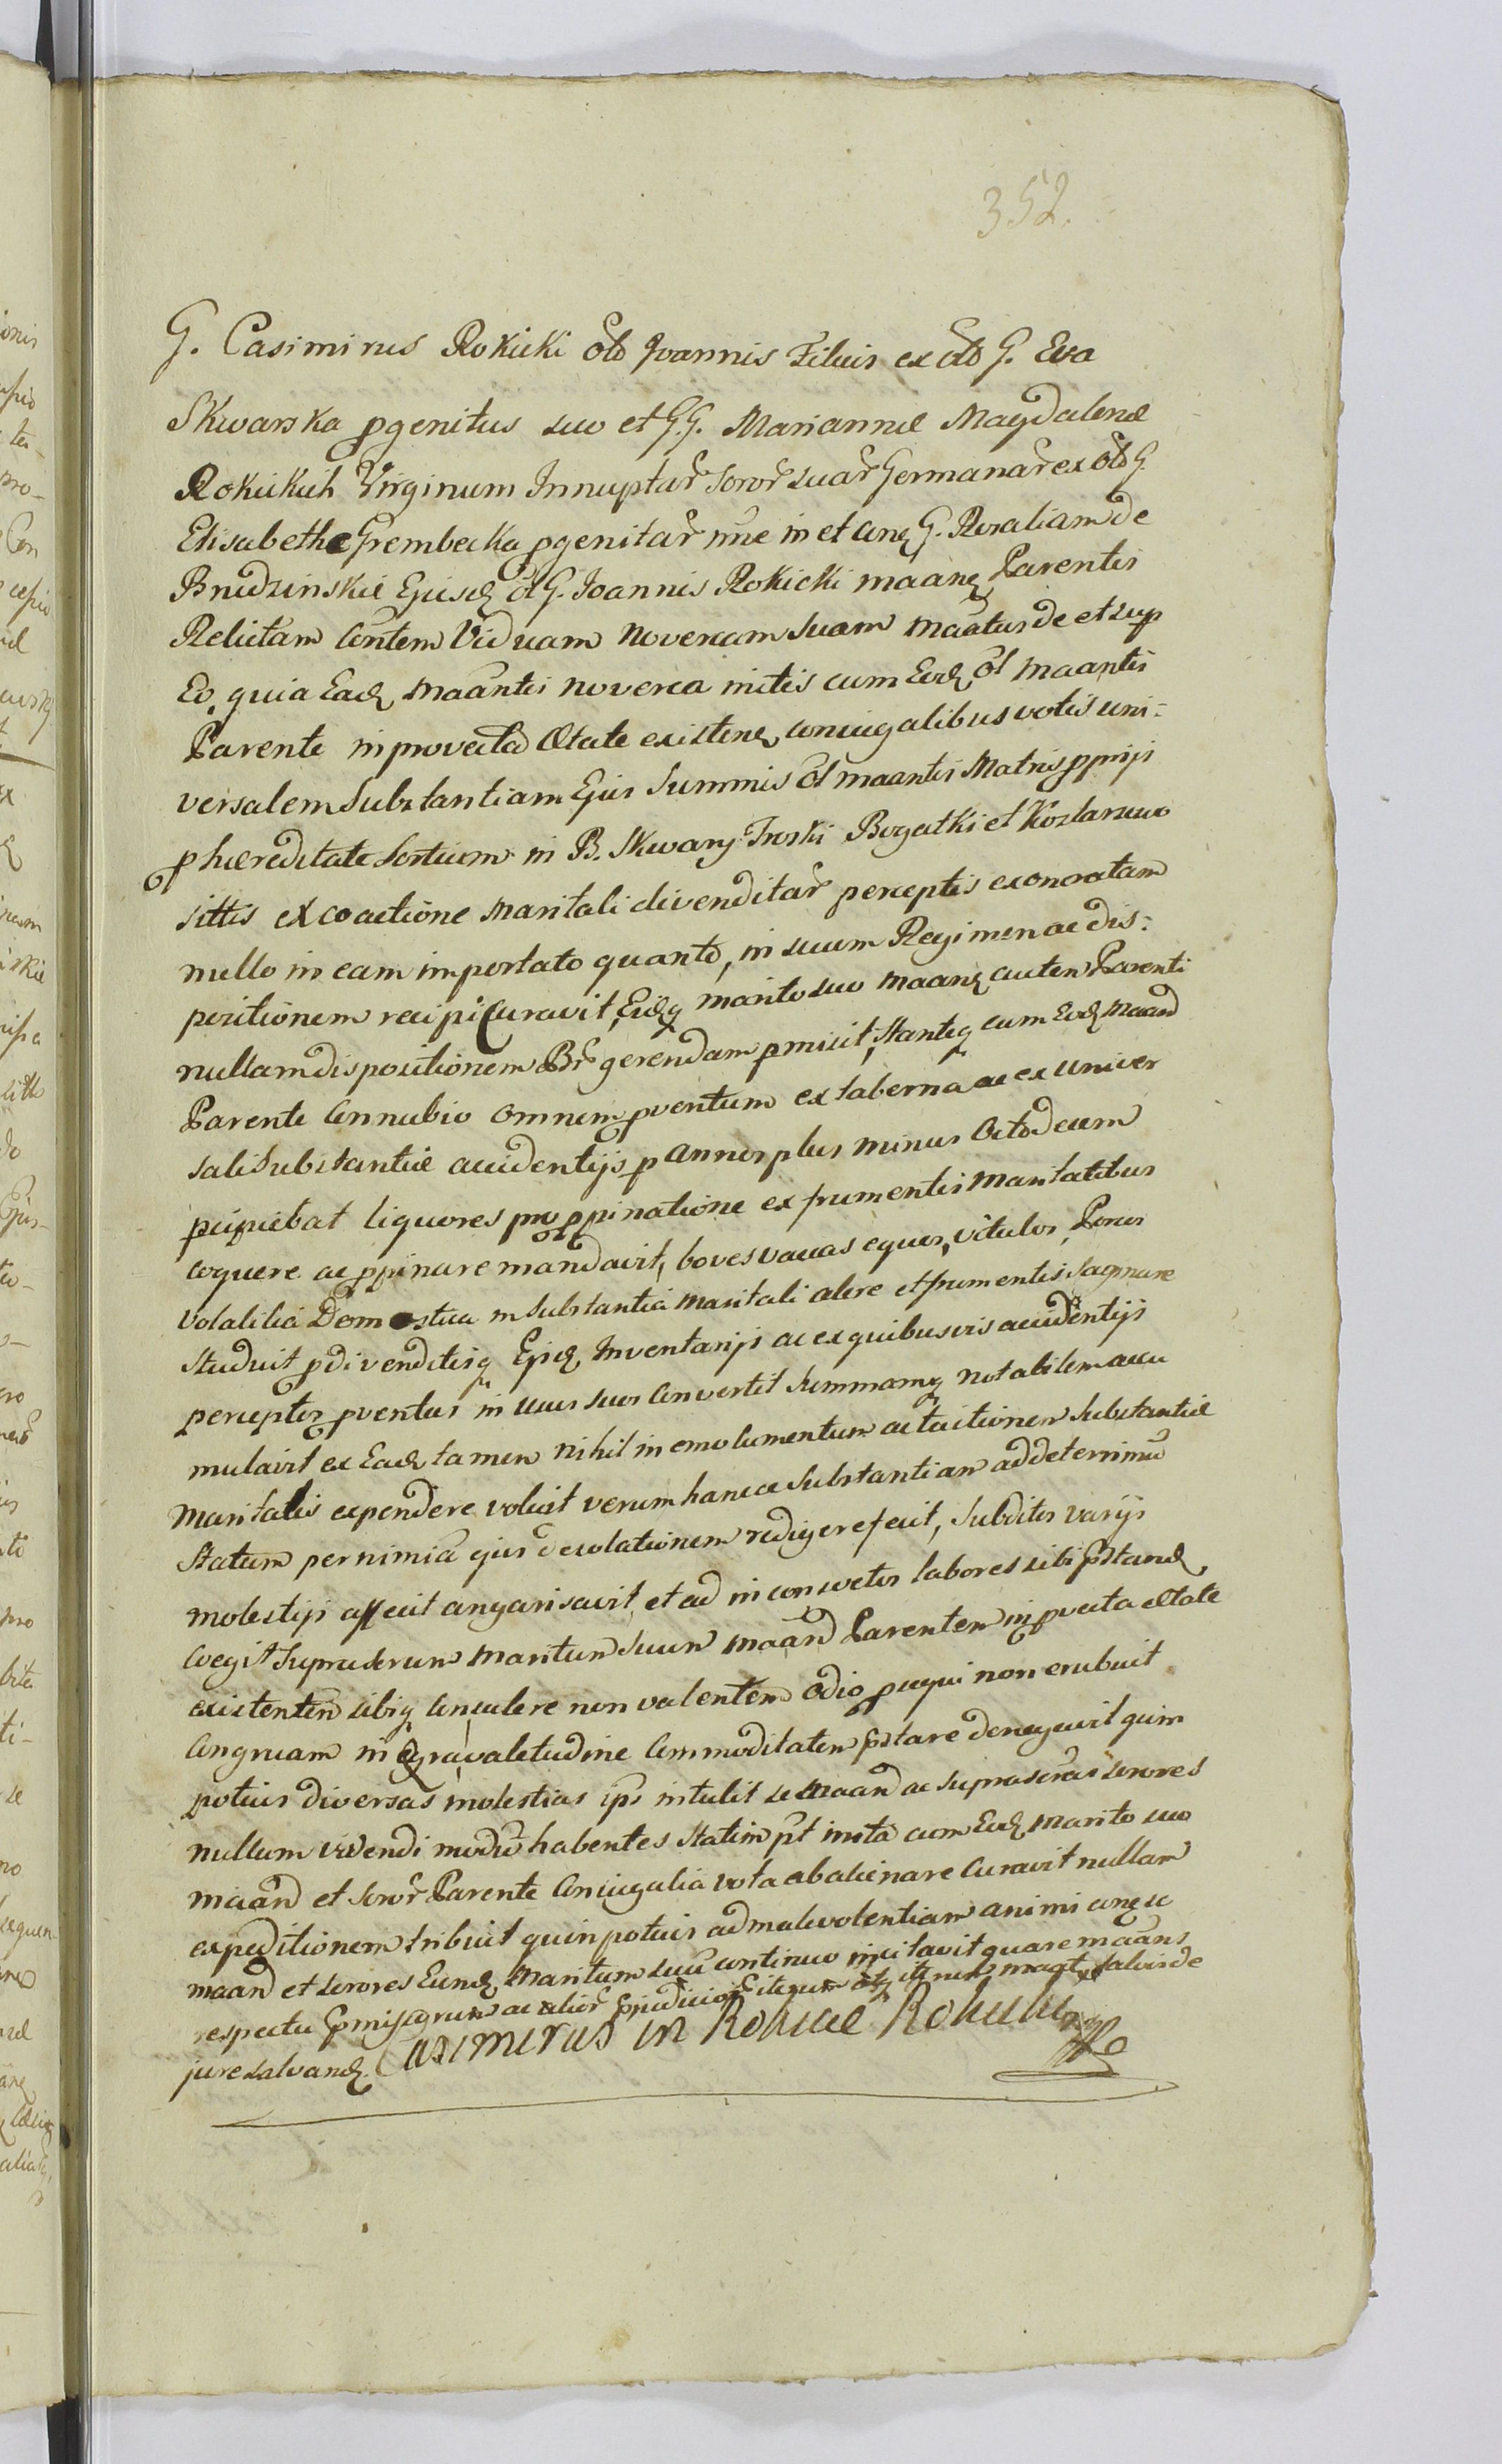 352.
G. Casimirus Rokicki olo Joannis Filius ex olo G. Eva
Skwarska pgenitus suo et G.G. Mariannæ Magdalenæ
Rokickich Virginum Innuptar soror suar Germanar ex olo G.
Elisabetha Grembecka pgenitar nne in et conq G. Rosaliam de
Brudzinskie Ejusdq ol G. Joannis Rokicki maanq Parentis
Relictam Contem Viduam Novercam suam maatus de et sup
Eo, quia Eadq maantis noverca initis cum Eodq ol maantis
Parente in provecta Ætate existenq conjugalibus votis uni:
versalem Substantiam Ejus Summis ol maantis Matris pprijs
p hæreditate Sortium in B. Skwary Troski Bogatki et Kozlarzewo
sittis ex coactione maritali divenditar perceptis exoneratam
nullo in eam importato quanto, in suum Regimen ac dis:
positionem recipi Curavit, Eidq marito suo maanq autem Parenti
nullam dispositionem Br gerendam pmisit, stanteq cum Eodq maand
Parente Connubio omnem pventum ex taberna ac ex univer
sali Substantiæ accidentijs p annos plus minus octodecem
pcipiebat liquores pro ppinatione ex frumentis Maritalibus
coquere ac ppinare mandavit, boves vaccas equos, vitulos, Porcos
Volatilia Domestica in Substantia Maritali alere et frumentis saginare
studuit pdivenditisq Ejsdq Inventarijs ac ex quibusvis accidentijs
perceptos pventus in usus suos Convertit Summamq notabilem accu
mulavit ex Eadq tamen nihil in emolumentum ac tuitionem Substantiæ
Maritalis expendere voluit verum hancce Substantiam ad deterrimu
Statum per nimia ejus desolationem redigere fecit, Subditos varijs
molestijs affecit angarisavit et ad inconsvetos labores sibi pstandq
Coegit Suprascrum Maritum Suum maand Parentem in pvecta ætate
existentem sibiq Consulere non valentem odio psequi non erubuit
Congruam in ægra valetudine Commoditatem pstare denegavit quim
potius diversas molestias ipsi intulit se maand ac suprascras sorores
nullum vivendi modu habentes statim pt inita cum Eodq marito suo
maand et soror Parente Conjugalia vota abalienare Curavit nullam
expeditionem tribuit quin potius ad malevolentiam animi conq se
maand et sorores Eundq Maritum suu continuo incitavit quare maans
respectu pmissorum ac alior pjudicior iterum atq iterum maat, salvis de
jure salvandq. Casimirus in Rokicie Rokicki mp